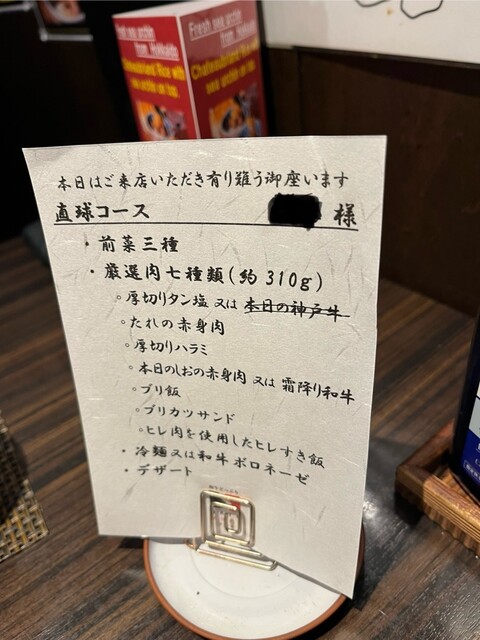 Fresh sea urchin
from Hokkaido
Chateaubriand Rice with
sea urchin on top
Fresh sea urchin
from Hokkaido
Chateaubriand Rice with
sea urchin on top
本日はご来店いただき有り難う御座います
直球コース 様
・前菜三種
・厳選肉七種類(約310g)
。厚切りタン塩 又は 本日の神戸牛
。たれの赤身肉
。厚切りハラミ
。本日のしおの赤身肉 又は 霜降り和牛
。ブリ飯
。ブリカツサンド
。ヒレ肉を使用したヒレすき飯
・冷麺又は和牛ボロネーゼ
・デザート